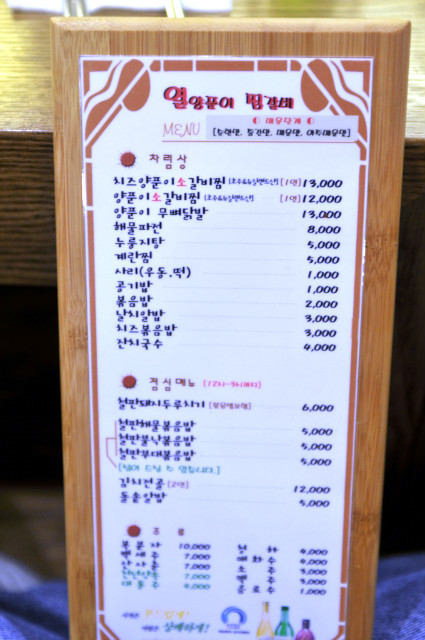 열양푼이 찜갈비
MENU
매운단계
차림상
치즈양푼이소갈비찜 [1인] 13,000
양푼이소갈비찜 [1인] 12,000
양푼이 무뼈닭발 13,000
해물파전 8,000
누룽지탕 5,000
계란찜 5,000
사리(우동.떡) 1,000
공기밥 1,000
볶음밥 2,000
날치알밥 3,000
치즈볶음밥 3,000
잔치국수 4,000
점심메뉴 [12시~3시까지]
철판돼지두루치기 6,000
철판해물볶음밥 5,000
철판불낙볶음밥 5,000
철판부대볶음밥 5,000
김치전골 [2인] 12,000
돌솥알밥 5,000
주 류
복분자 10,000
백세주 7,000
산사춘 7,000
천년약속 7,000
대통주
청하 4,000
매화수 4,000
소주 3,000
맥주 3,000
음료수 1,000